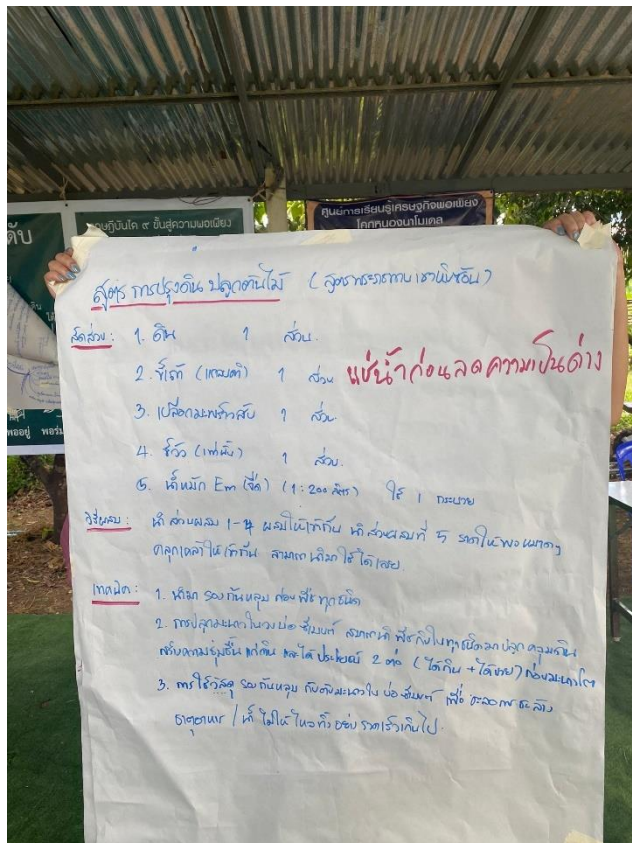 ดับ
ทฤษฎีบันได ๙ ขั้นสู่ความพอเพียง
ศูนย์การเรียนรู้เศรษฐกิจพอเพียง
โคกหนองนาโมเดล
สูตร การปรุงดิน ปลูกต้นไม้ (สูตรพระราชทาน เขาหินซ้อน)
สัดส่วน : 1. ดิน 1 ส่วน.
2. ขี้เถ้า (แกลบดำ) 1 ส่วน แช่น้ำก่อนลดความเป็นด่าง
3. เปลือกมะพร้าวสับ 1 ส่วน.
4. ขี้วัว (เท่านั้น) 1 ส่วน.
5. น้ำหมัก Em (จืด) (1 : 200 ลิตร) ใช้ 1 กระบวย
วิธีผสม : นำส่วนผสม 1-4 ผสมให้เข้ากัน นำส่วนผสมที่ 5 ราดให้พอหมาดๆ
คลุกเคล้าให้เข้ากัน สามารถนำมาใช้ได้เลย.
เทคนิค : 1. นำมา รองก้นหลุม ก่อนพืชทุกชนิด
2. การปลูกมะนาวในวงบ่อซีเมนต์ สามารถนำพืชกินใบทุกชนิดมาปลูกคลุมดิน
ความชุ่มชื้น แก่ดิน และได้ประโยชน์ 2 ต่อ (ได้กิน + ได้ขาย) ก่อนมะนาวโต
3. การใช้วัสดุ รองก้นหลุม กับต้นมะนาวใน บ่อซีเมนต์ เพื่อ ชะลอการชะล้าง
ธาตุอาหาร / น้ำ ไม่ให้ไหลทิ้งรวดเร็วเกินไป.
พออยู่ พอร่ม